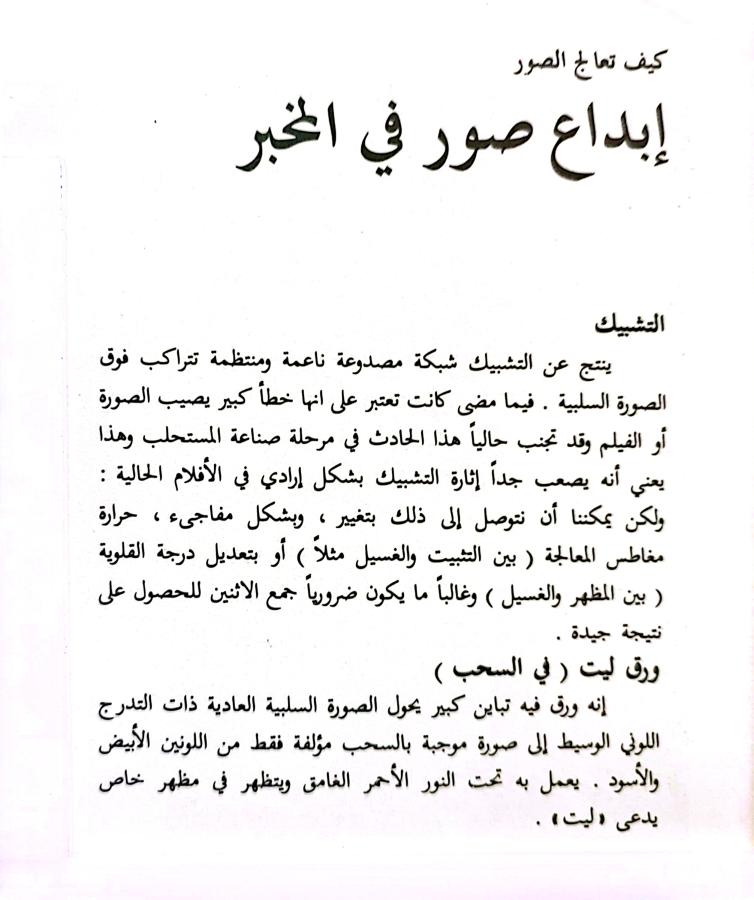 كيف تعالج الصور
إبداع صور في المخبر
التشبيك
ينتج عن التشبيك شبكة مصدوعة ناعمة ومنتظمة تتراكب فوق
الصورة السلبية . فيما مضى كانت تعتبر على انها خطأ كبير يصيب الصورة
أو الفيلم وقد تجنب حالياً هذا الحادث في مرحلة صناعة المستحلب وهذا
يعني أنه يصعب جداً إثارة التشبيك بشكل إرادي في الأفلام الحالية :
ولكن يمكننا أن نتوصل إلى ذلك بتغيير ، وبشكل مفاجىء ، حرارة
مغاطس المعالجة ( بين التثبيت والغسيل مثلاً ) أو بتعديل درجة القلوية
( بين المظهر والغسيل ) وغالباً ما يكون ضرورياً جمع الاثنين للحصول على
نتيجة جيدة .
ورق ليت ( في السحب )
إنه ورق فيه تباين كبير يحول الصورة السلبية العادية ذات التدرج
اللوني الوسيط إلى صورة موجبة بالسحب مؤلفة فقط من اللونين الأبيض
والأسود . يعمل به تحت النور الأحمر الغامق ويتظهر في مظهر خاص
يدعى «ليت» .